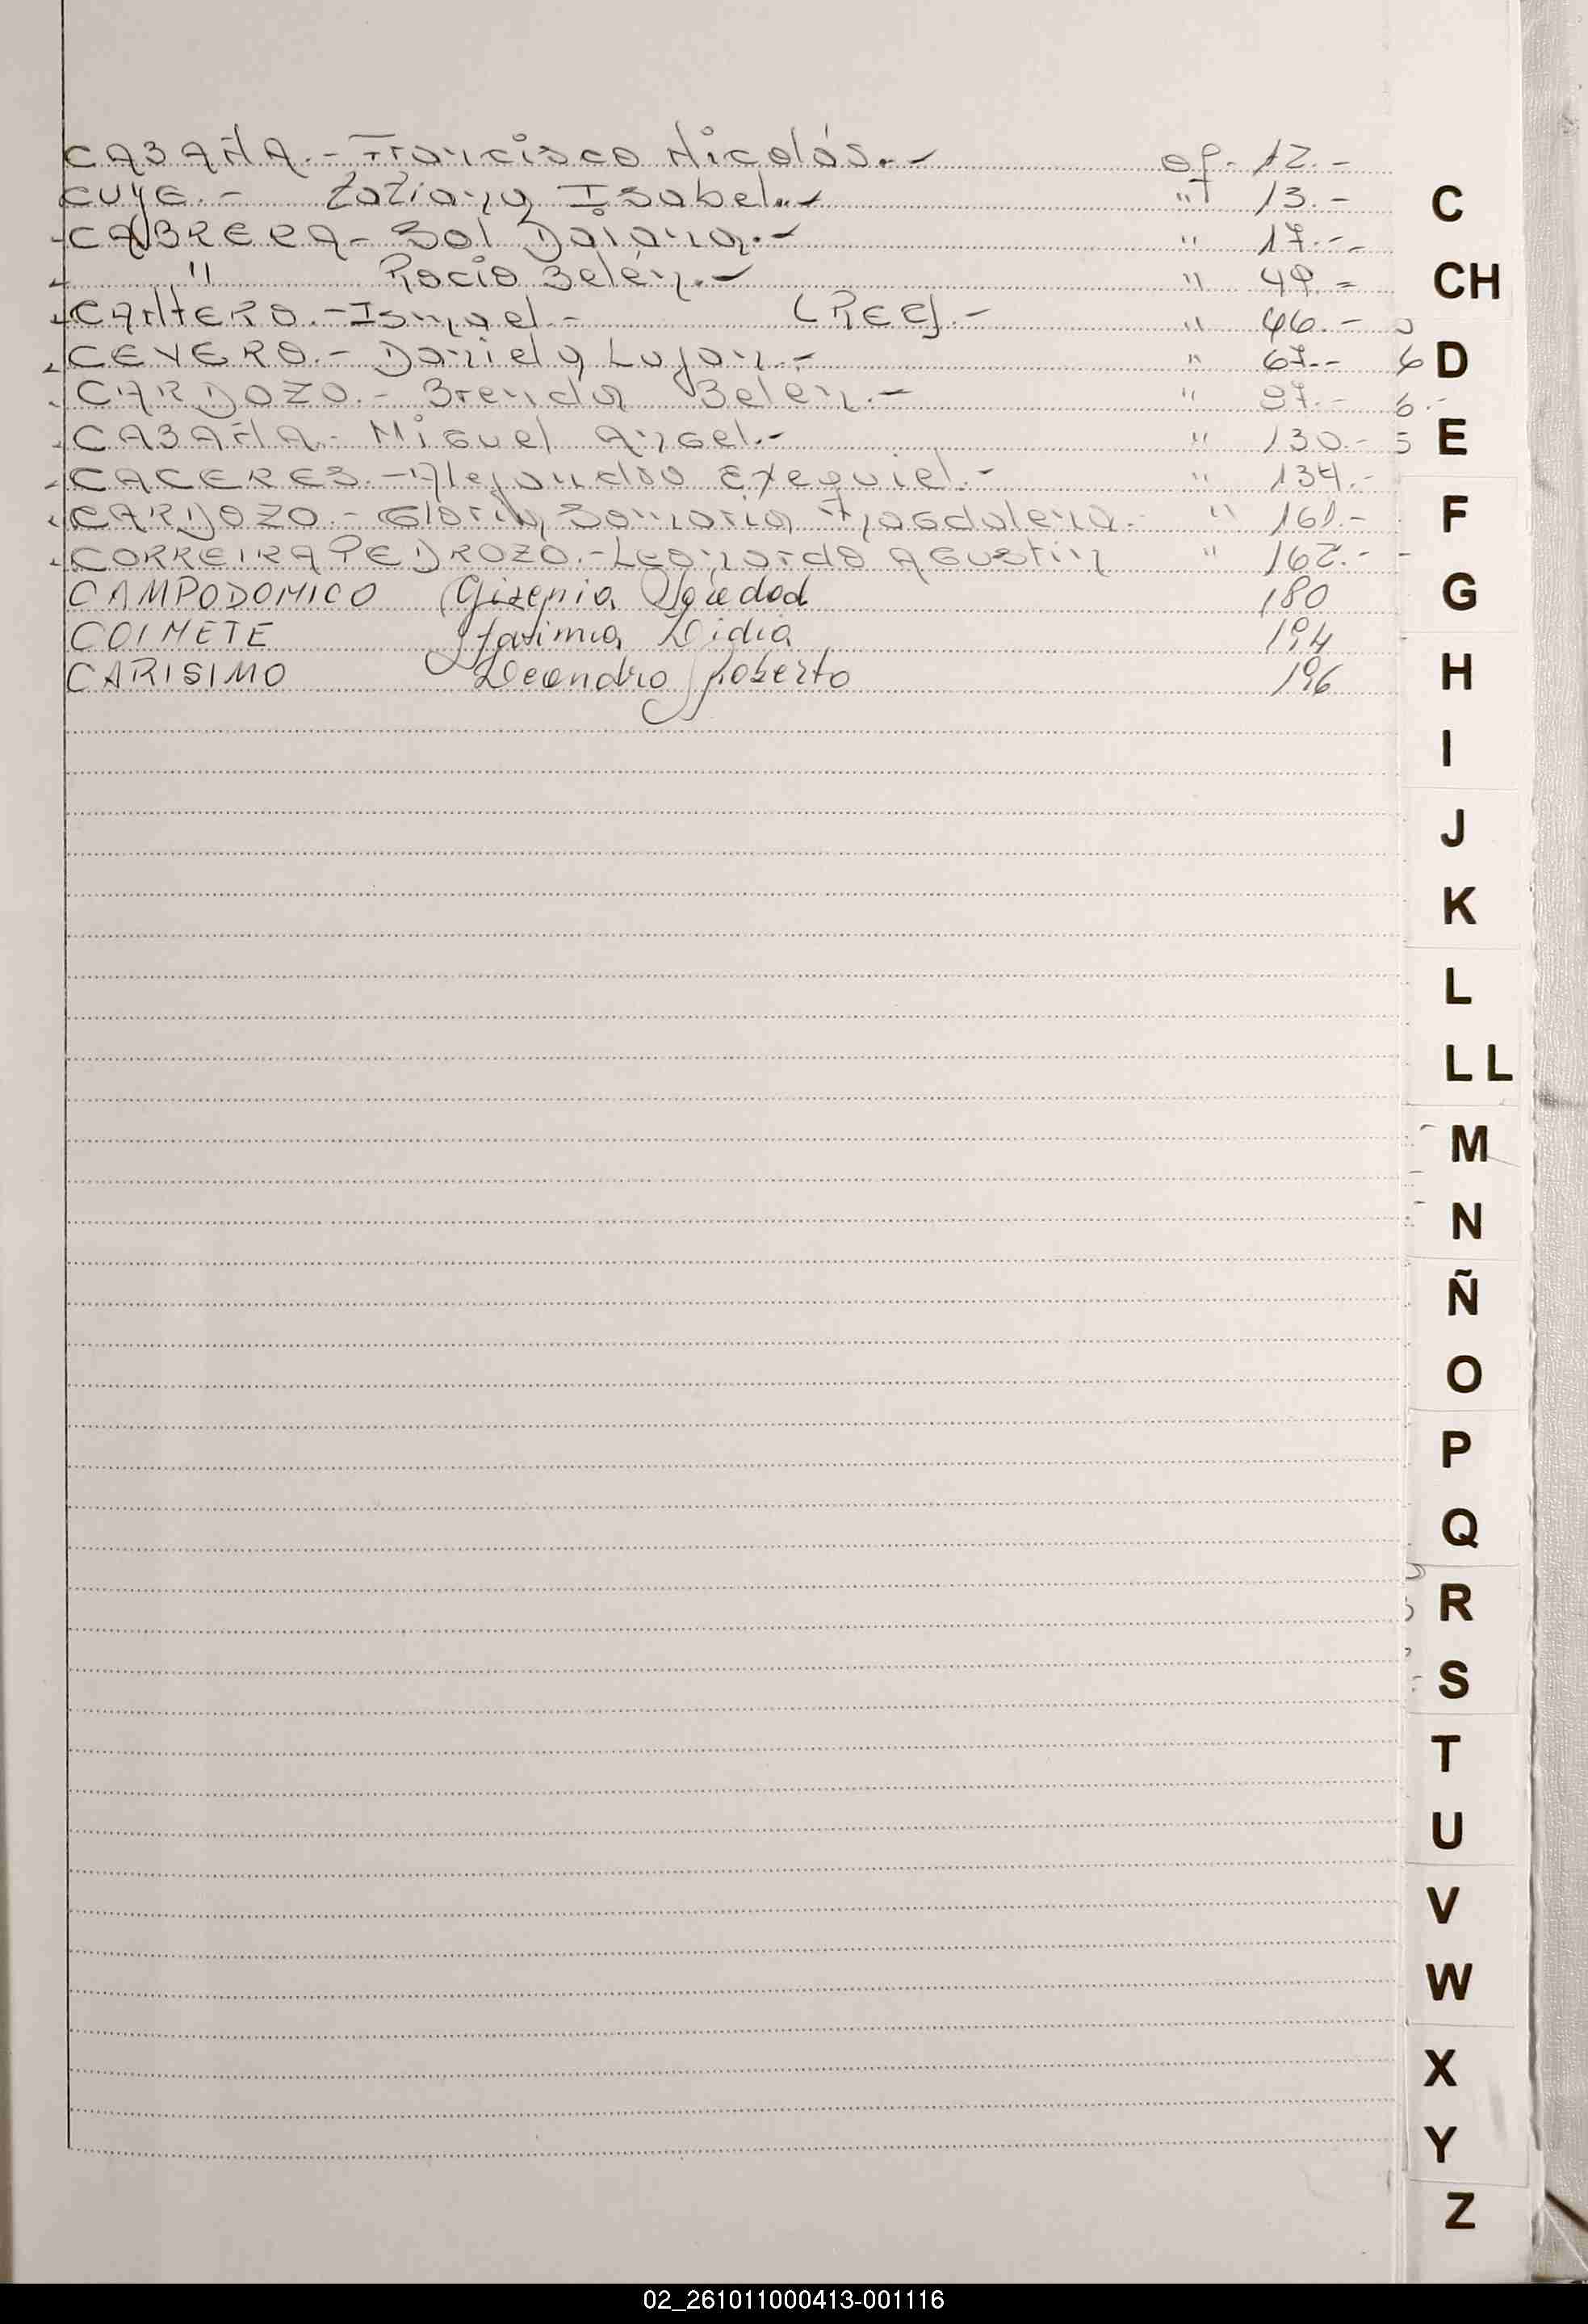 CABAÑA.- Francisco Nicolás.- of- 12.-
CUYE.- Tatiana Isabel.- " 13.-
CABRERA- Sol Daiana.- " 17.-
" Rocio Belén.- " 49.=
CANTERO.- Ismael.- (REC).- " 46.-
CEVERO.- Daniela Lujan.- " 67.-
CARDOZO.- Brenda Belen.- " 97.-
CABAÑA.- Miguel Angel.- " 130.-
CACERES.- Alejandro Exequiel.- " 134.-
CARDOZO.- Gloria Samaria Magdalena.- " 161.-
CORREIRA PEDROZO.- Leonardo Agustin " 162.-
CAMPODOMICO Soledad 180
COIMETE Lidia 194
CARISIMO Leandro Roberto 196
C
CH
D
E
F
G
H
I
J
K
L
LL
M
N
Ñ
O
P
Q
R
S
T
U
V
W
X
Y
Z
02_261011000413-001116